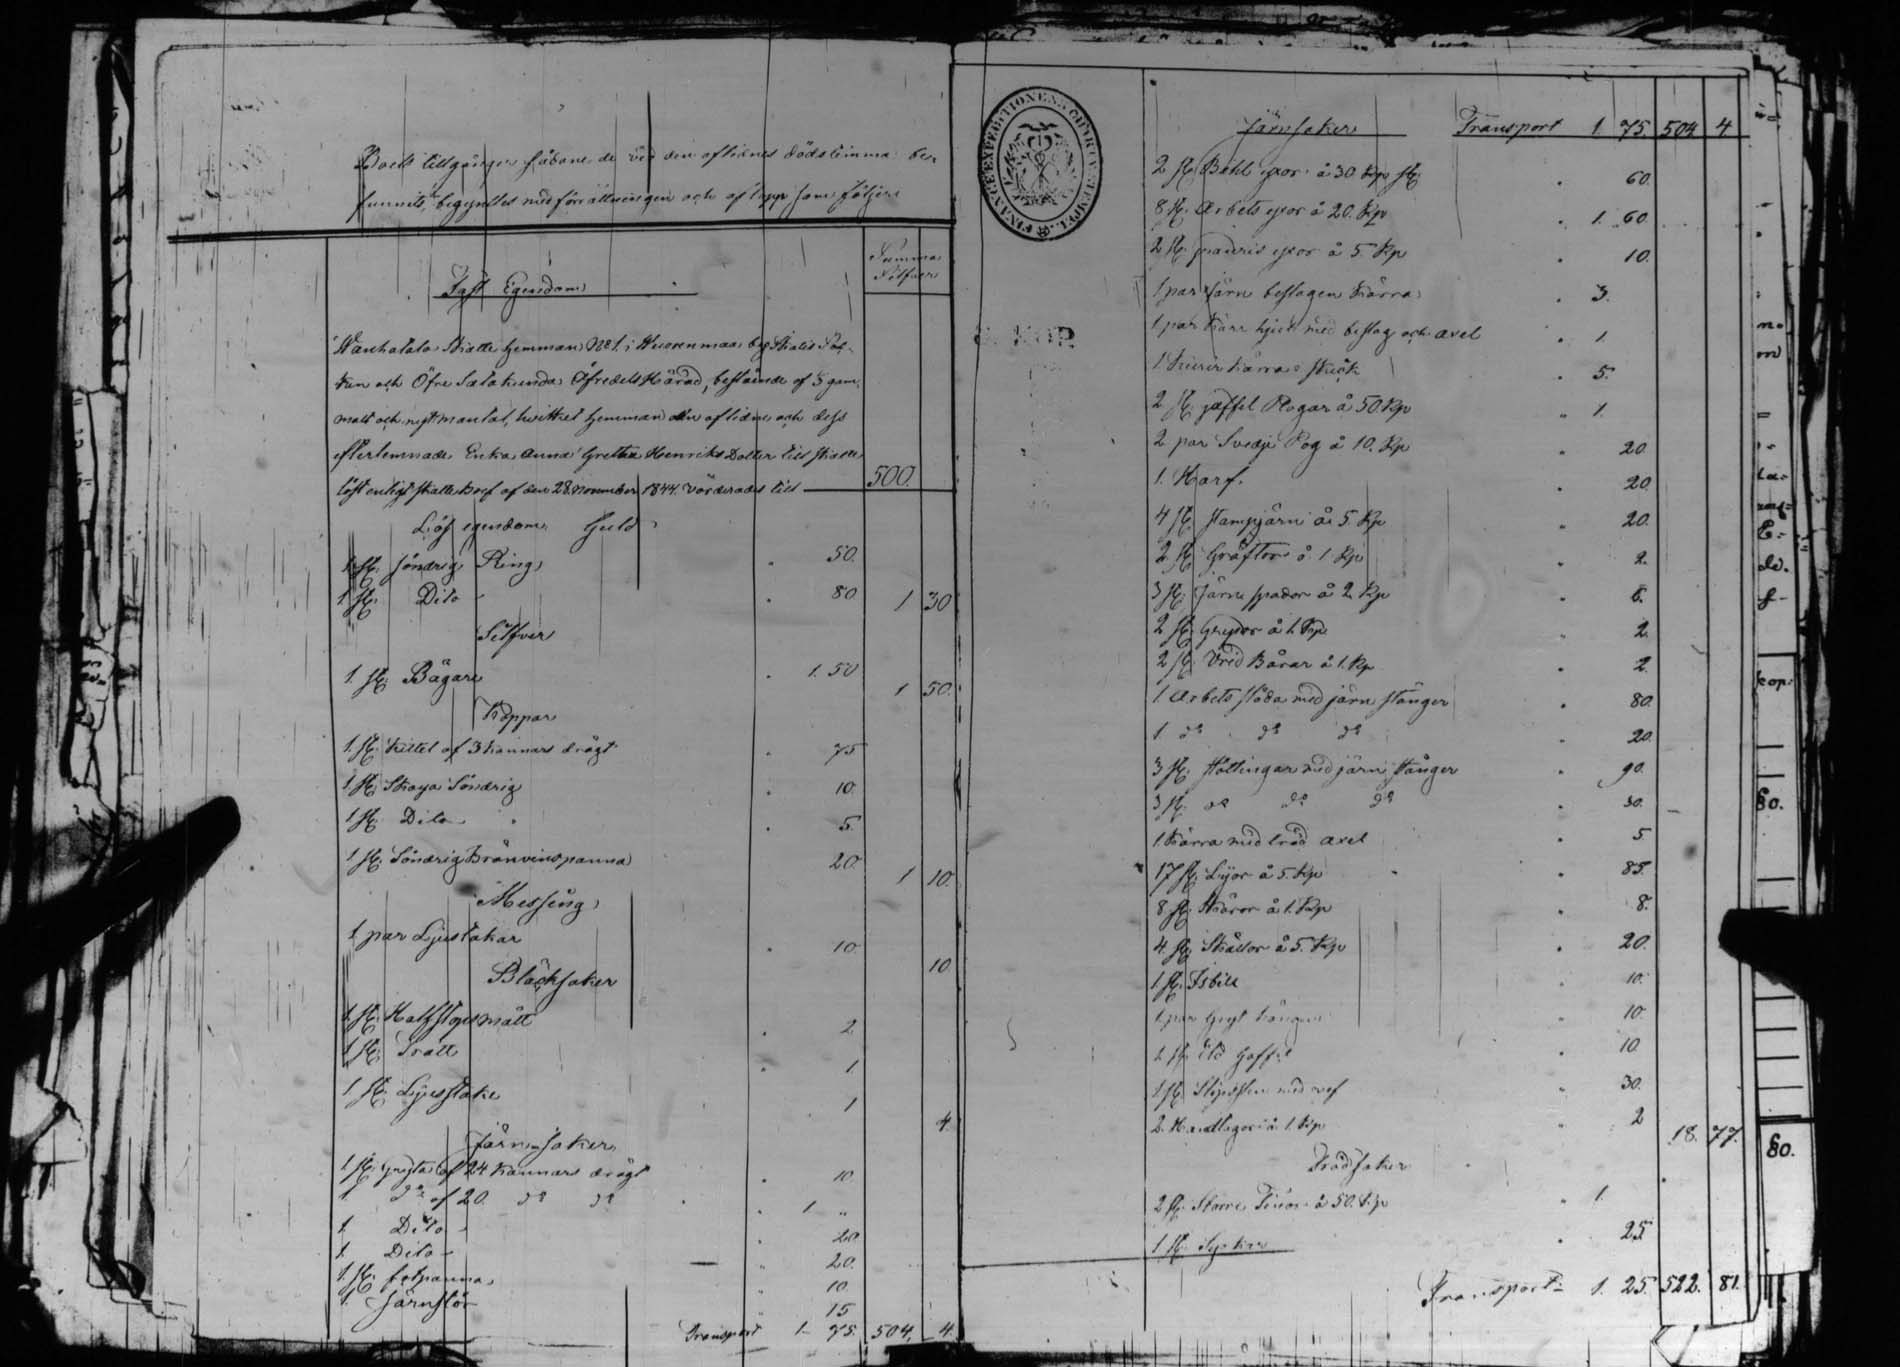 Boets tillgångar sådane de vid den aflidnes dödstimma be-
funnits, begyntes med förrättningen och aftogs som följer
Summa
Silfver
Fast Egendom
Skatte hemman No 1. i by
och Öfre Satakunda Öfredels Härad, bestående af gam-
malt och nytt mantal, hvilket hemman den aflidne och dess
efterlemnade Enka Anna Gretha Henriks Dotter till skatte
löst enligt skattebref af den 28. November 1844. värderades till 500.
Lös egendom Guld
1 st. söndrig Ring " 50.
1 st. Dito " 80 1 30
Silfver
1. st. Bägare " 1. 50 1 50.
Koppar
1. st. Kittel af 3 kannors drägt " 75
1 st. söndrig " 10.
1 st. Dito " 5.
1 st. Söndrig Bränvinspanna 20 1 10.
Messing
1 par Ljustakar " 10. 10
Bläcksaker
1. st. Halfstops mått " 2
1 st. Tratt " 1
1 st. Ljusstake 1 4.
Järn saker
1 st. Gryta af 24 kannors drägt " 10.
1 do af 20. do do " 1 "
1. Dito " 20
1. Dito " 20.
1. st. " 10
1. Järnstör " 15
Transport 1 75. 504. 4.
Järnsaker Transport 1. 75. 504 4
2 st. yxor à 30 Kop st. " 60.
8 st. Arbets yxor à 20. Kop " 1. 60
2 st. yxor à 5. Kop " 10.
1 par Järn beslagen Kärra " 3.
1 par Kärr hjul med beslag och axel " 1.
1. kärra " 5.
2 st. gaffel Plogar à 50. Kop " 1.
2 par Svedje Plog à 10. Kop " 20.
1. Harf. " 20
4 st. Stampjärn à 5. Kop " 20.
2 st. Gräftor à 1 Kop " 2.
3 st. Järn spador à 2 Kop " 6.
2 st. à 1. Kop " 2
2 st. Vrid Bårar à 1. Kop " 2.
1 Arbets släda med järn stänger " 80.
1. do do do " 20.
3 st. Stöttingar med järn stänger " 90.
3 st. do do do " 30.
1. Kärra med träd axel " 5
17 st. Lijor à 5. Kop " 85.
8 st. Skäror à 1. Kop " 8.
4 st. Skällor à 5. Kop " 20.
1 st. Isbill " 10.
1 par " 10.
1 st. Eld Gaffel " 10.
1 st. Slipsten med vef " 30.
2. à 1. Kop " 2 18. 77.
Trädsaker
2 st. Större Tinor à 50. Kop " 1.
1 st. " 25.
Transport 1. 25. 522. 81.
80.
80.